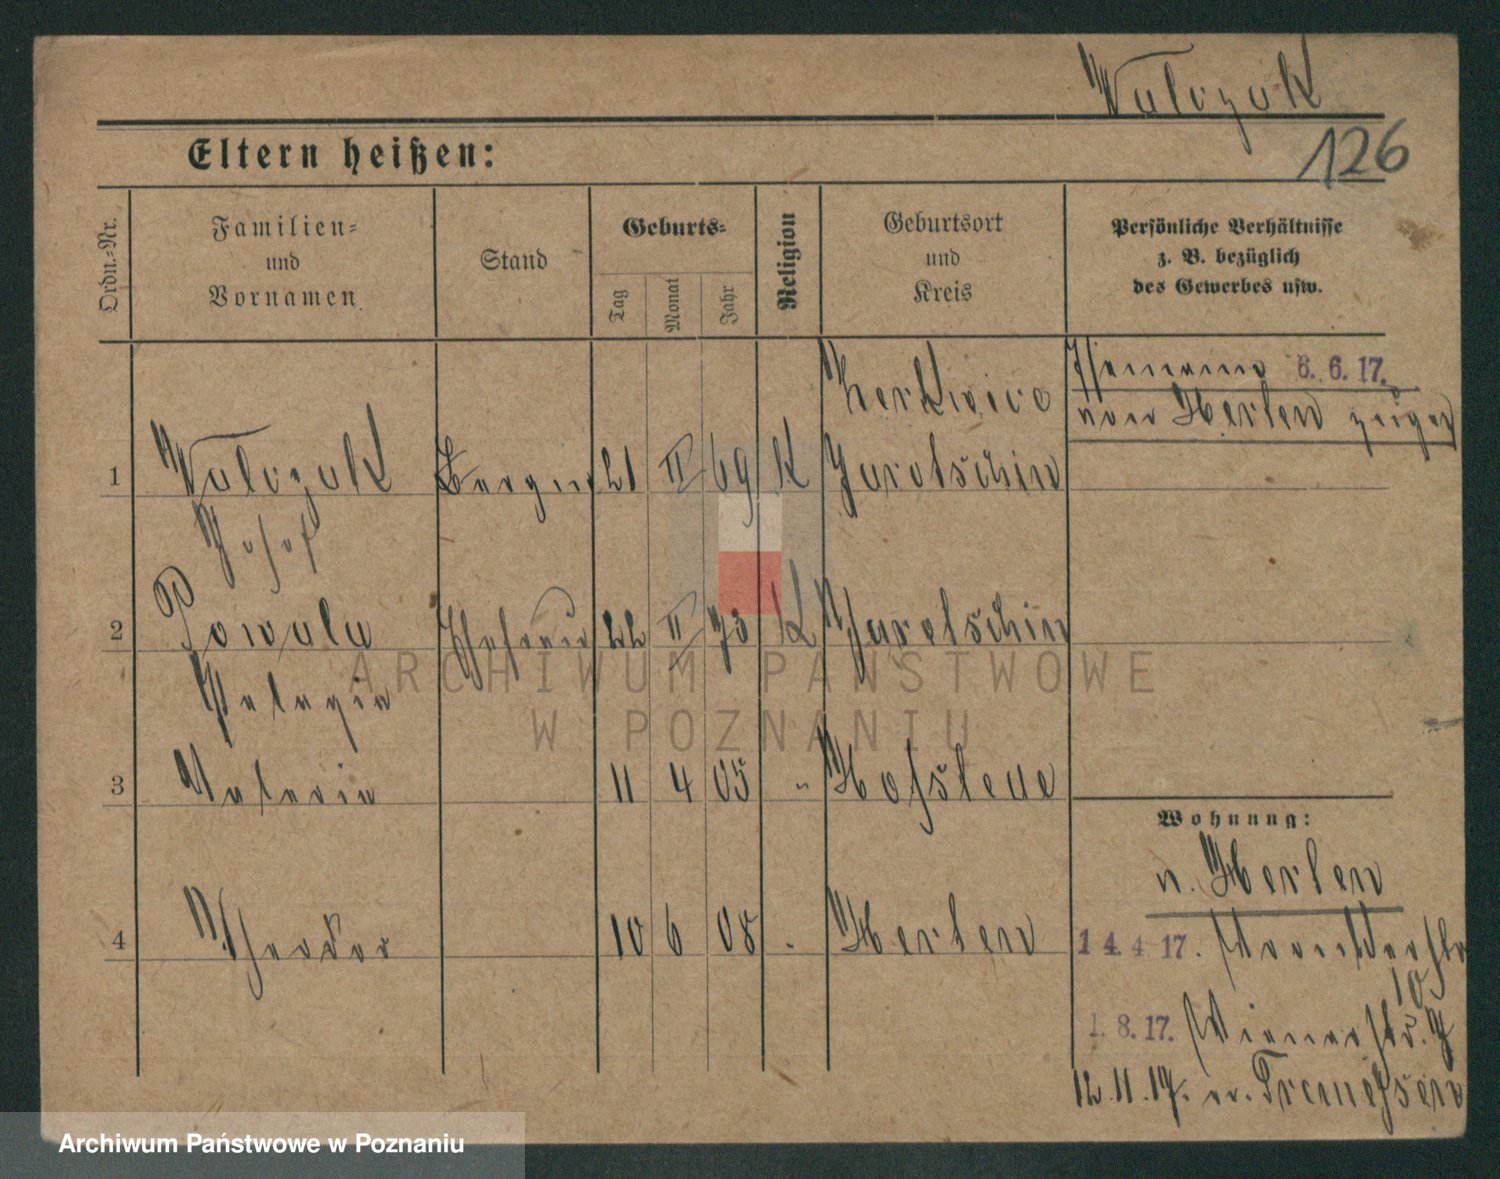 Walczak
126
Eltern heißen:
Ordn.-Nr.
Familien-
und
Vornamen
Stand
Geburts-
Tag
Monat
Jahr
Religion
Geburtsort
und
Kreis
Persönliche Verhältnisse
z. B. bezüglich
des Gewerbes usw.
6. 6. 17.
von Herten
Zerkwice
1 Walczak 21 II 69 K Jarotschin
Josef
2 Powala Ehefrau 22 II 73 K Jarotschin
Pelagia
3 Valeria 11 4 05 " Hofstede
Wohnung:
v. Herten
4 Theodor 10 6 08 Herten
14. 4 17.
10
1. 8. 17. Wienerstr. 7
12. 11. 17. n. Tremessen
ARCHIWUM PAŃSTWOWE
W POZNANIU
Archiwum Państwowe w Poznaniu